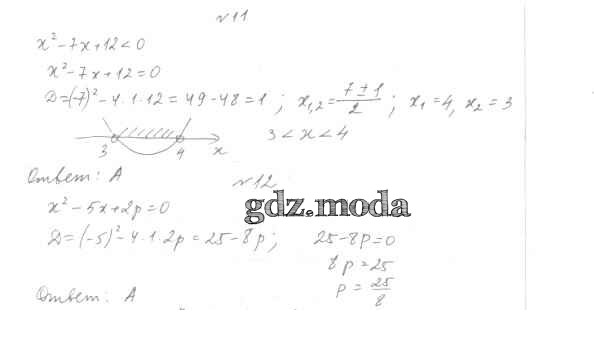 №11
x²-7x+12<0
x²-7x+12=0
D=(-7)²-4·1·12=49-48=1; x₁,₂=(7±1)/2; x₁=4, x₂=3
3 4 x 3<x<4
Ответ: А
№12
gdz.moda
x²-5x+2p=0
D=(-5)²-4·1·2p=25-8p; 25-8p=0
8p=25
p=25/8
Ответ: А